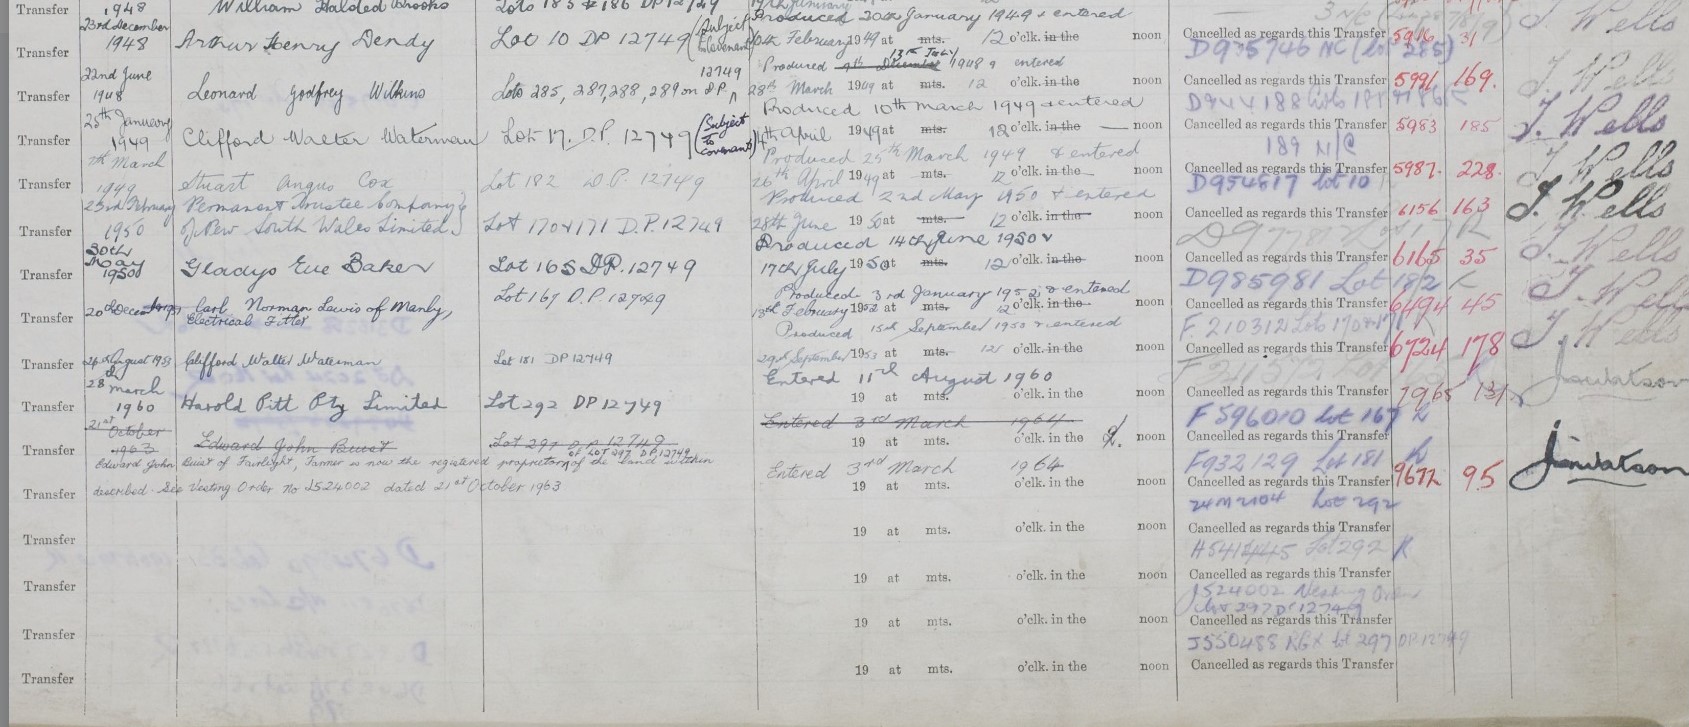 1948 William Halsted Brooks Lots 185 & 186 DP 12749
Produced 20th January 1949 & entered
Transfer 23rd December 1948 Arthur Henry Dendy Lot 10 DP 12749 (Subject Covenant) February 1949 at mts. 12 o'clk. in the noon Cancelled as regards this Transfer 5916 31 J. Wells
D975746 NC (lot 285)
Produced 13th July 1948 & entered
Transfer 22nd June 1948 Leonard Godfrey Wilkins Lots 285, 287, 288, 289 on D.P. 12749 28th March 1949 at mts. 12 o'clk. in the noon Cancelled as regards this Transfer 5991 169. J. Wells
Produced 10th March 1949 & entered
D944188
Transfer 25th January 1949 Clifford Walter Waterman Lot 17. D.P. 12749 (Subject to covenants) 4th April 1949 at mts. 12 o'clk. in the noon Cancelled as regards this Transfer 5983 185 J. Wells
Produced 25th March 1949 & entered
189 N/C
Transfer 7th March 1949 Stuart Angus Cox Lot 182 D.P. 12749 26th April 1949 at mts. 12 o'clk. in the noon Cancelled as regards this Transfer 5987. 228. J. Wells
Produced 2nd May 1950 & entered
D954617 Lot 10
Transfer 23rd February 1950 Permanent Trustee Company of New South Wales Limited. Lot 170 & 171 D.P. 12749 28th June 1950 at mts. 12 o'clk. in the noon Cancelled as regards this Transfer 6156 163 J. Wells
Produced 14th June 1950 &
Transfer 30th May 1950 Gladys Eve Baker Lot 165 D.P. 12749 17th July 1950 at mts. 12 o'clk. in the noon Cancelled as regards this Transfer 6165 35 J. Wells
D985981 Lot 182
Produced 3rd January 1952, & entered
Transfer 20th Decem 1951 Carl Norman Lewis of Manly, Electrical Fitter Lot 167 D.P. 12749 18th February 1952 at mts. 12 o'clk. in the noon Cancelled as regards this Transfer 6494 45 J. Wells
F. 210312 Lots 170 & 171
Produced 15th September 1953 & entered
Transfer 26th August 1953 Clifford Walter Waterman Lot 181 DP 12749 29th September 1953 at mts. 12 o'clk. in the noon Cancelled as regards this Transfer 6724 178 J. Wells
Entered 11th August 1960
Transfer 28th March 1960 Harold Pitt Pty Limited Lot 292 DP 12749 19 at mts. o'clk. in the noon Cancelled as regards this Transfer 7965 131 Jawatson
F596010 Lot 167
Entered 3rd March 1964
Transfer 21st October 1963 Edward John Buist Lot 297 D.P. 12749 19 at mts. o'clk. in the noon Cancelled as regards this Transfer
F932129 Lot 181
Edward John Buist of Fairlight, Farmer is now the registered proprietor of LOT 297 DP 12749 of the land within Entered 3rd March 1964
Transfer described - See Vesting Order No J524002 dated 21st October 1963 19 at mts. o'clk. in the noon Cancelled as regards this Transfer 9672 95 Jawatson
Lot 292
Transfer 19 at mts. o'clk. in the noon Cancelled as regards this Transfer
Lot 292
Transfer 19 at mts. o'clk. in the noon Cancelled as regards this Transfer
J524002 Vesting Order
Lot 297 DP 12749
Transfer 19 at mts. o'clk. in the noon Cancelled as regards this Transfer
J550488 RGX Lot 297 DP.12749
Transfer 19 at mts. o'clk. in the noon Cancelled as regards this Transfer